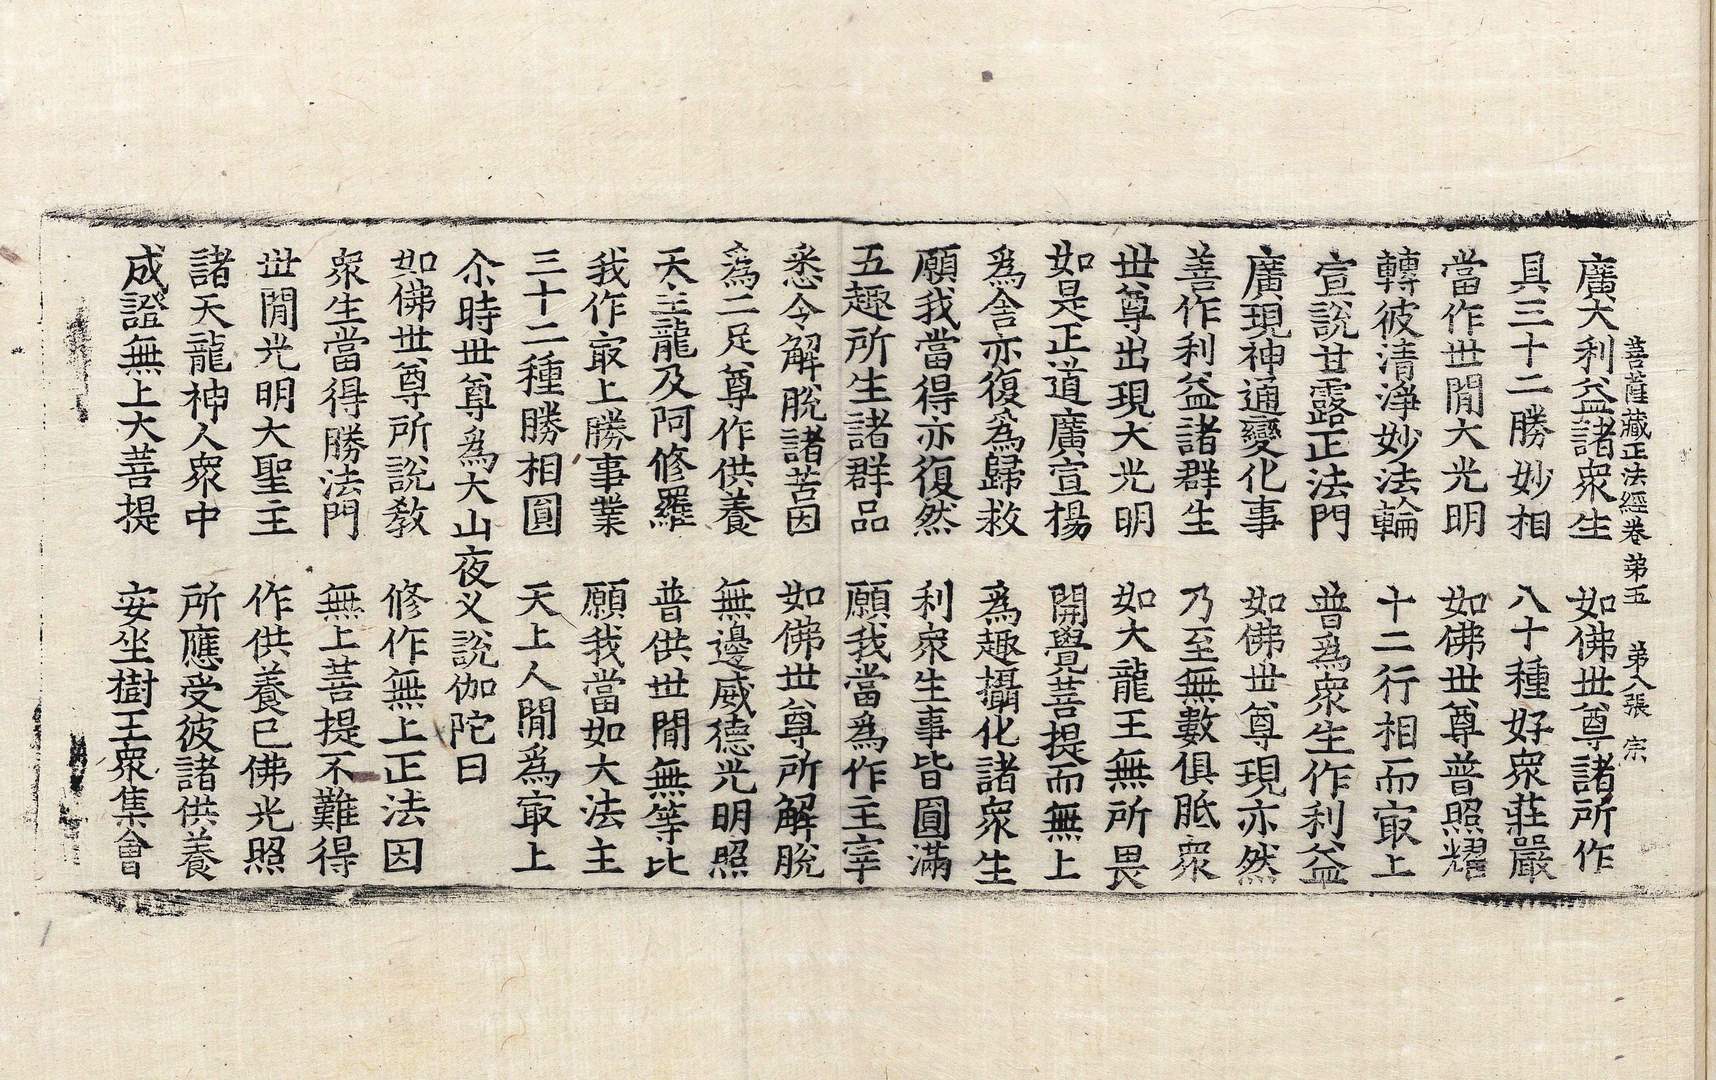 菩薩藏正法經卷第五 第八張 宗
廣大利益諸衆生 如佛世尊諸所作
具三十二勝妙相 八十種好衆莊嚴
當作世閒大光明 如佛世尊普照耀
轉彼清淨妙法輪 十二行相而㝡上
宣說甘露正法門 普爲衆生作利益
廣現神通變化事 如佛世尊現亦然
善作利益諸群生 乃至無數俱胝衆
世尊出現大光明 如大龍王無所畏
如是正道廣宣揚 開覺菩提而無上
爲舍亦復爲歸救 爲趣攝化諸衆生
願我當得亦復然 利衆生事皆圓滿
五趣所生諸群品 願我當爲作主宰
悉令解脫諸苦因 如佛世尊所解脫
爲二足尊作供養 無邊威德光明照
天主龍及阿修羅 普供世閒無等比
我作㝡上勝事業 願我當如大法主
三十二種勝相圓 天上人閒爲㝡上
尒時世尊爲大山夜叉說伽陀曰
如佛世尊所說教 修作無上正法因
衆生當得勝法門 無上菩提不難得
世閒光明大聖主 作供養已佛光照
諸天龍神人衆中 所應受彼諸供養
成證無上大菩提 安坐樹王衆集會